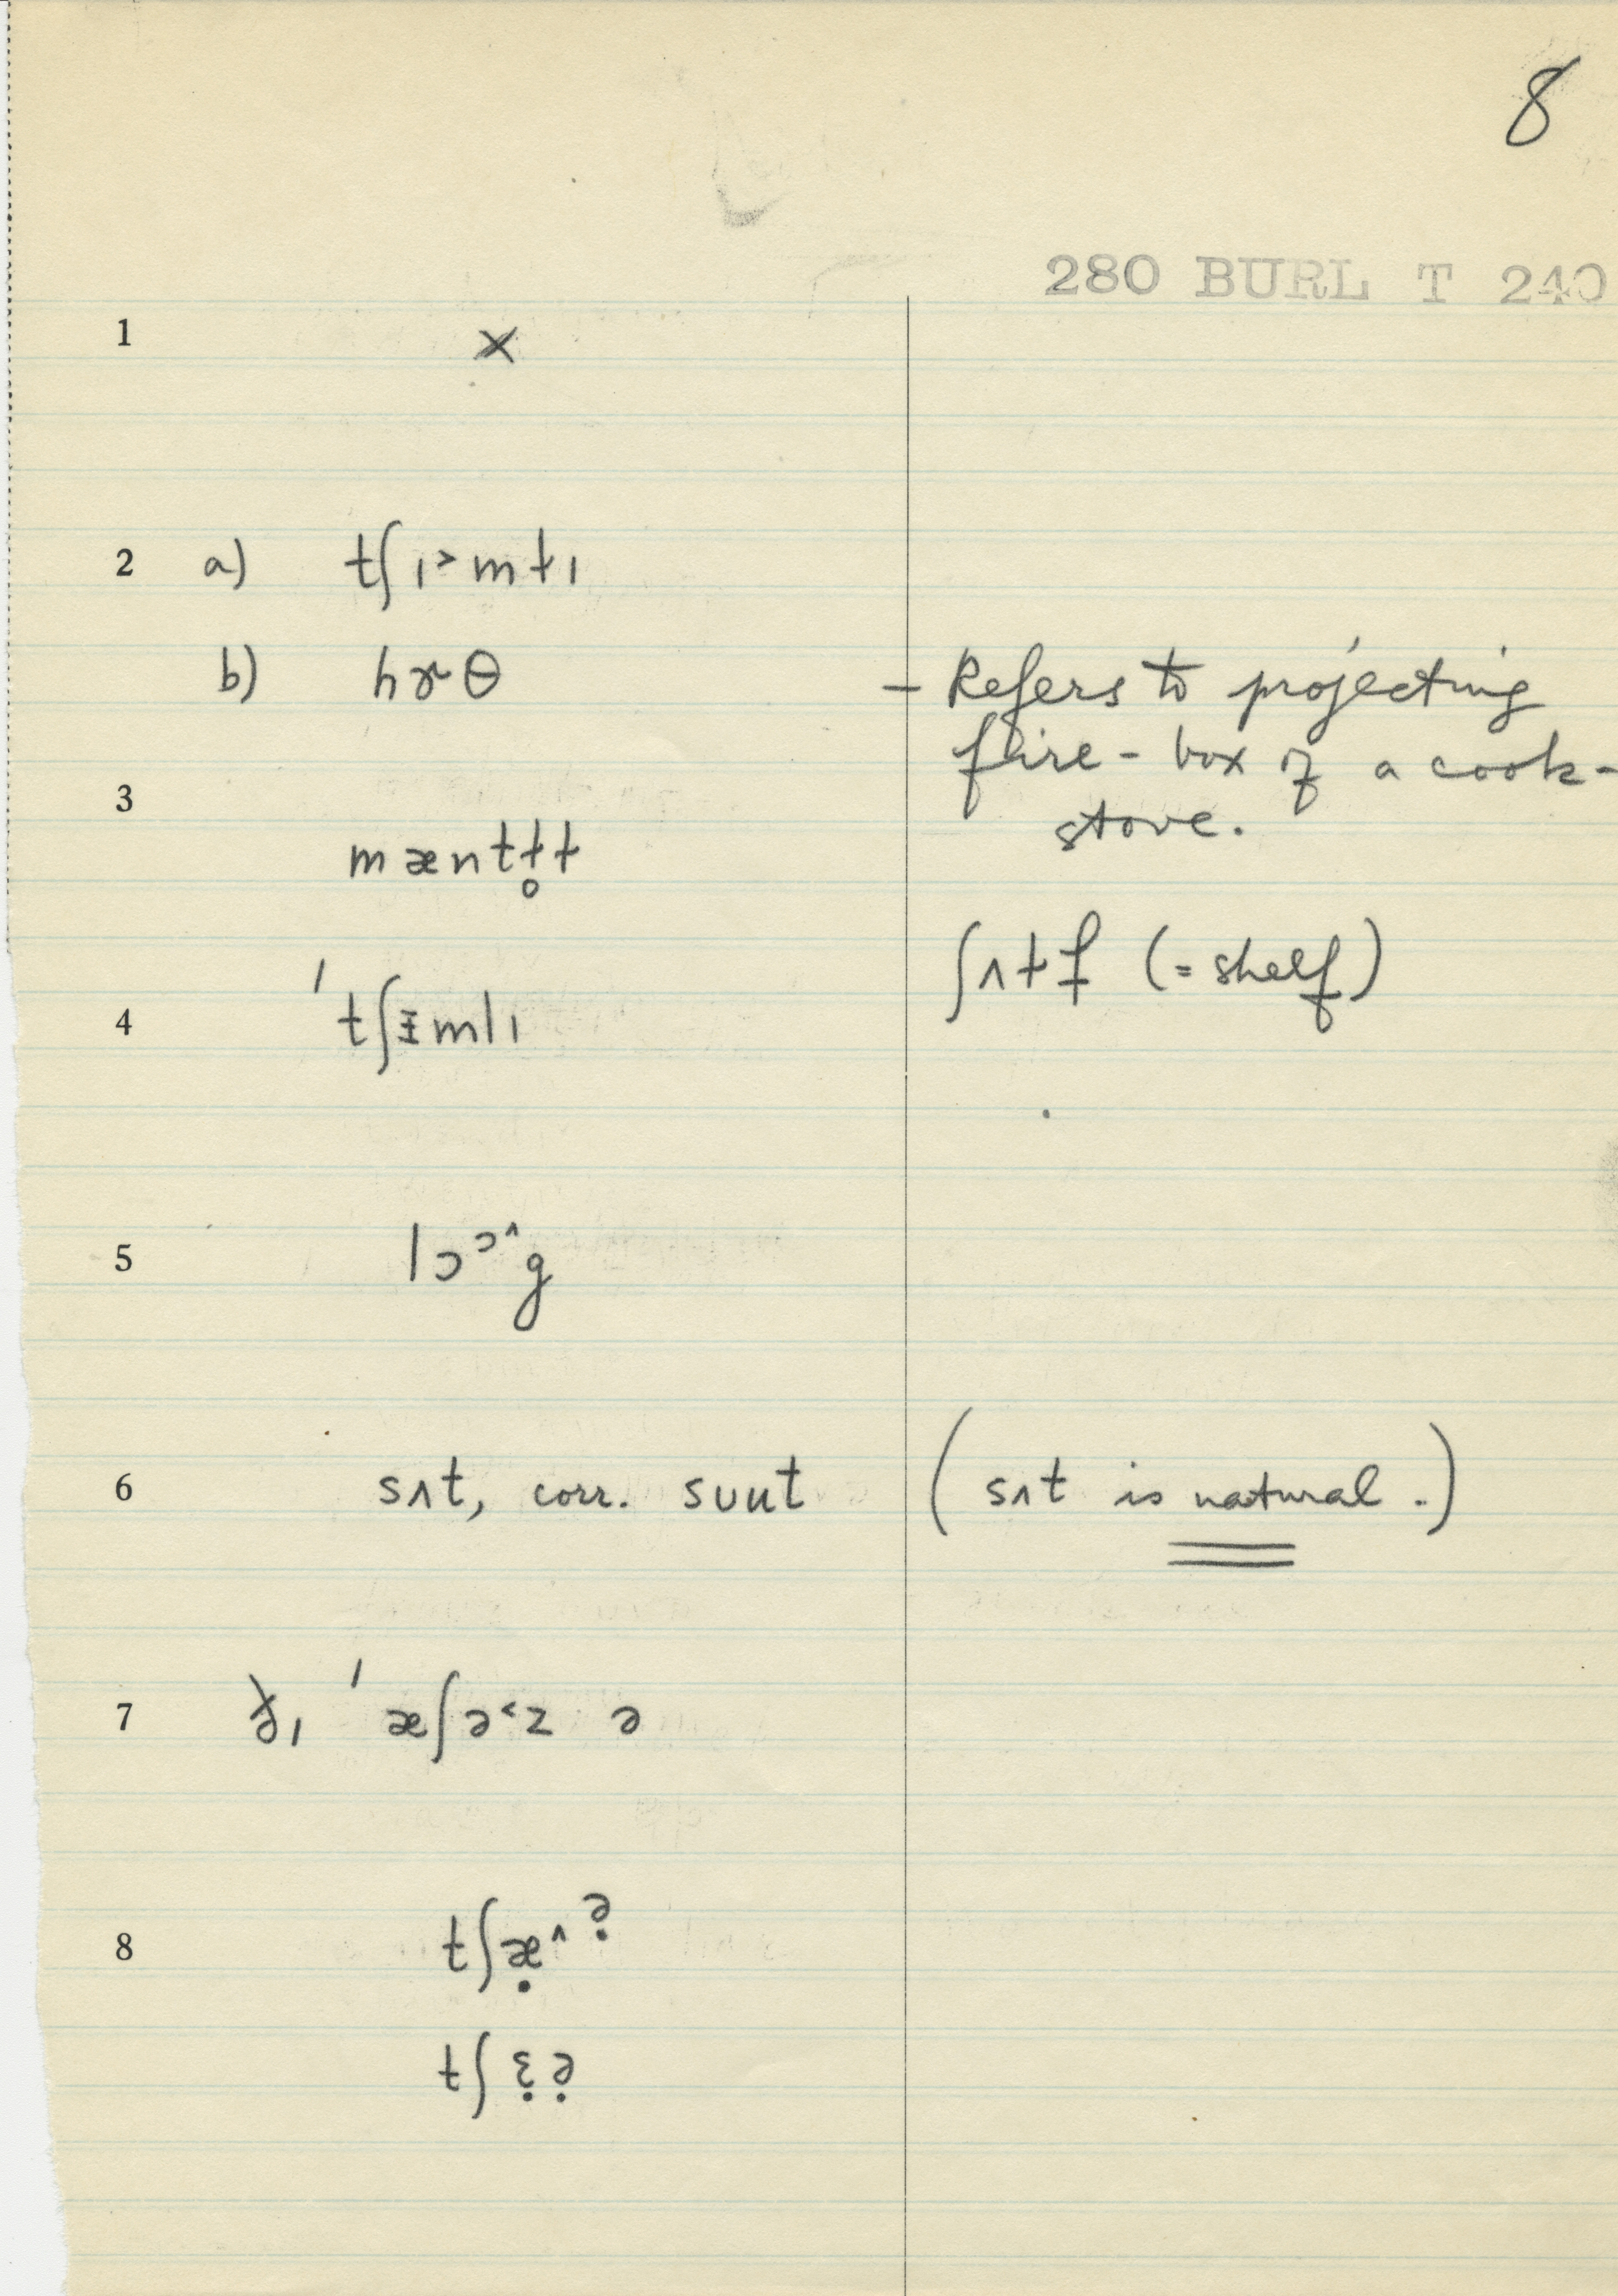 8
280 BURL T 240
1 x
2 a) tʃɪ˃mɫɪ
b) hɤθ – Refers to projecting
fire-box of a cook-
stove.
3 mæntɫ̥ɫ
ʃʌɫf (= shelf)
4 ˈtʃɪmlɪ
5 lɔᵓ^g
6 sʌt, corr. sʊut (sʌt is natural.)
7 ðɪ ˈæʃə˂z ə
8 tʃæ̣^ᵊ̣
tʃɛ̣ə̣